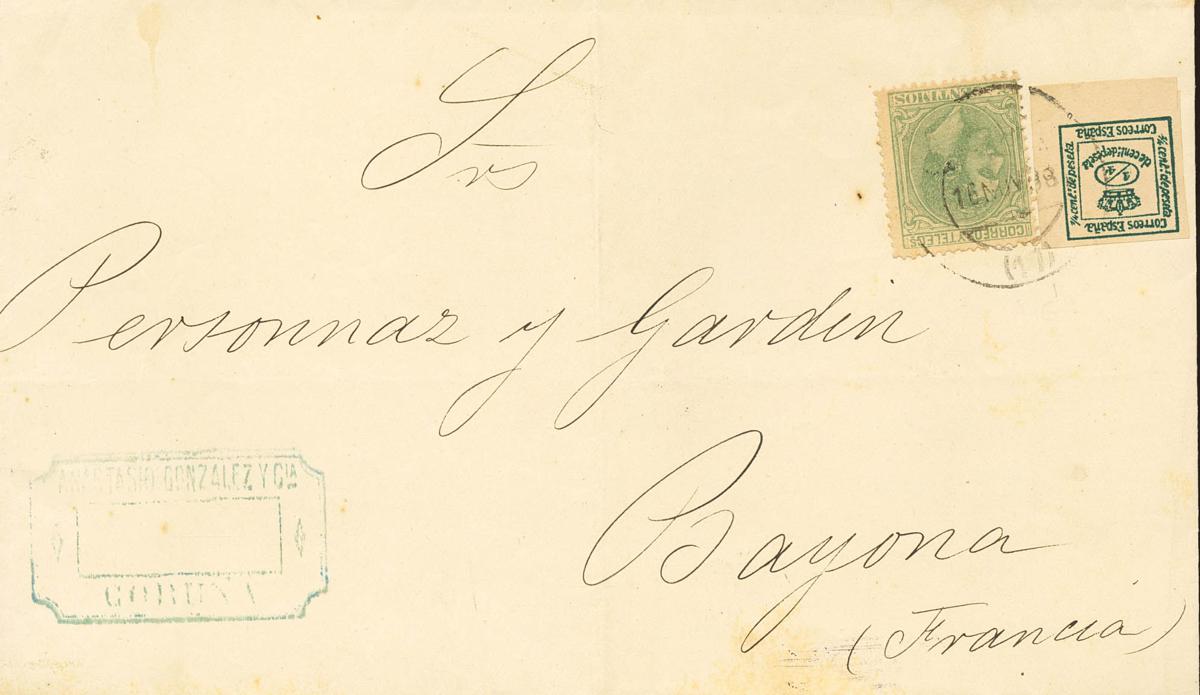 Srs
Personnaz y Gardin
Bayona
(Francia)
ANASTASIO GONZALEZ Y CIA
CORUÑA
CORREOS Y TELEGS
CENTIMOS
(11)
Correos España
¼ cent: de peseta
¼ cent: de peseta
Correos España
1/4
de cent: de peseta